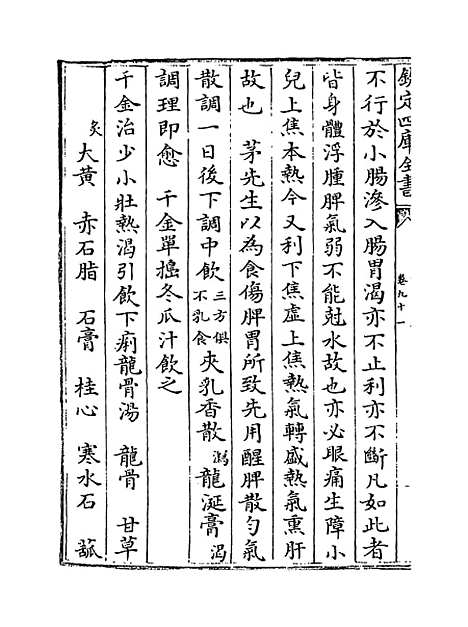 欽定四庫全書
卷九十一
不行於小腸滲入腸胃渴亦不止利亦不斷凡如此者
皆身體浮腫脾氣弱不能尅水故也亦必眼痛生障小
兒上焦本熱今又利下焦虛上焦熱氣轉盛熱氣熏肝
故也　茅先生以為食傷脾胃所致先用醒脾散勻氣
散調一日後下調中飲三方俱不乳食夾乳香散瀉龍涎膏渴
調理即愈　千金單搗冬瓜汁飲之
千金治少小壯熱渴引飲下痢龍骨湯　龍骨　甘草
炙　大黄　赤石脂　石膏　桂心　寒水石　蓏